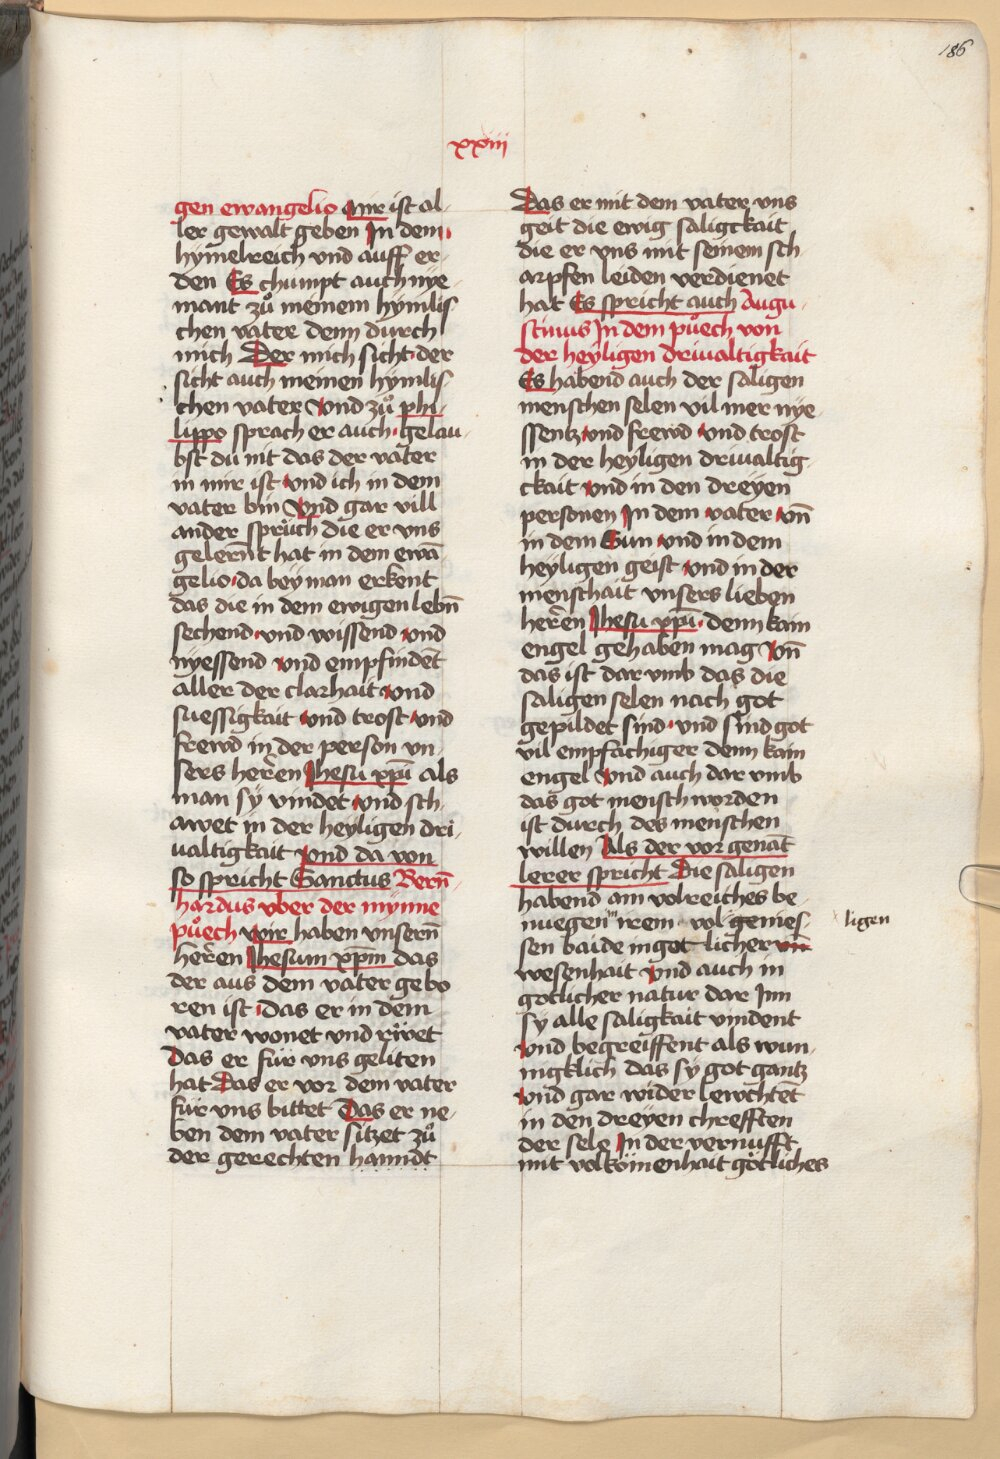 186
xxiii
gen ewangelio Mir ist al-
ler gewalt geben In dem
hymelreich vnd auff er-
den Es chumpt auch nye
mant zů meinem hymlis
chen vater denn durch
mich Der mich sicht der
sicht auch meinen hymlis
chen vater Vnd zů phi-
lippo sprach er auch gelau
bst du nit das der vater
in mir ist vnd ich in dem
vater bin Vnd gar vill
ander sprüch die er vns
gelernt hat in dem ewā-
gelio da bey man erkent
das die in dem ewigen lebn̄
sechend vnd wissend vnd
nyessend vnd empfindēt
aller der clarhait vnd
suessigkait vnd trost vnd
frewd in der person vn-
sers herren Jhesu xp̄i als
man sy vindet vnd sch
awet in der heyligen dri-
ualtigkait Vnd da von
so spricht Sanctus Bern̄-
hardus vber der mynne
půech Wir haben vnsern̄
herren Jhesum xp̄m das
der aus dem vater gebo
ren ist das er in dem
vater wonet vnd rwet
Das er für vns geliten
hat Das er vor dem vater
für vns bittet Das er ne-
ben dem vater sitzet zů
der gerechten hanndt
Das er mit dem vater vns
geit die ewig saligckait
die er vns mit seinem sch
arpfen leiden verdienet
hat Es spricht auch Augu-
stinus In dem půech von
der heyligen driualtigkait
Es habend auch der saligen
menschen selen vil mer nye-
ssentz vnd frewd vnd trost
in der heyligen driualtig-
ckait vnd in den dreyen
personen In dem vater vn̄
in dem Sun vnd in dem
heyligen geist vnd in der
menschait vnsers lieben
herren Jhesu xp̄i denn kain
engel gehaben mag Vn̄
das ist dar vmb das die
saligen selen nach got
gepildet sind vnd sind got
vil empfachiger denn kain
engel Vnd auch dar vmb
das got mensch worden
ist durch des menschen
willen Als der vor genāt
lerer spricht Die saligen
habend am volreiches be-
nuegen in irem vol genies-
ligen
sen baide in got licher vn̄
wesenhait Vnd auch in
gotlicher natur dar Inn
sy alle saligkait vindent
Vnd begreiffent als wun-
nigklich das sy got gantz
Vnd gar wider lewchtēt
in den dreyen chrefften
der sele In der vernufft
mit volkōmenhait götliches